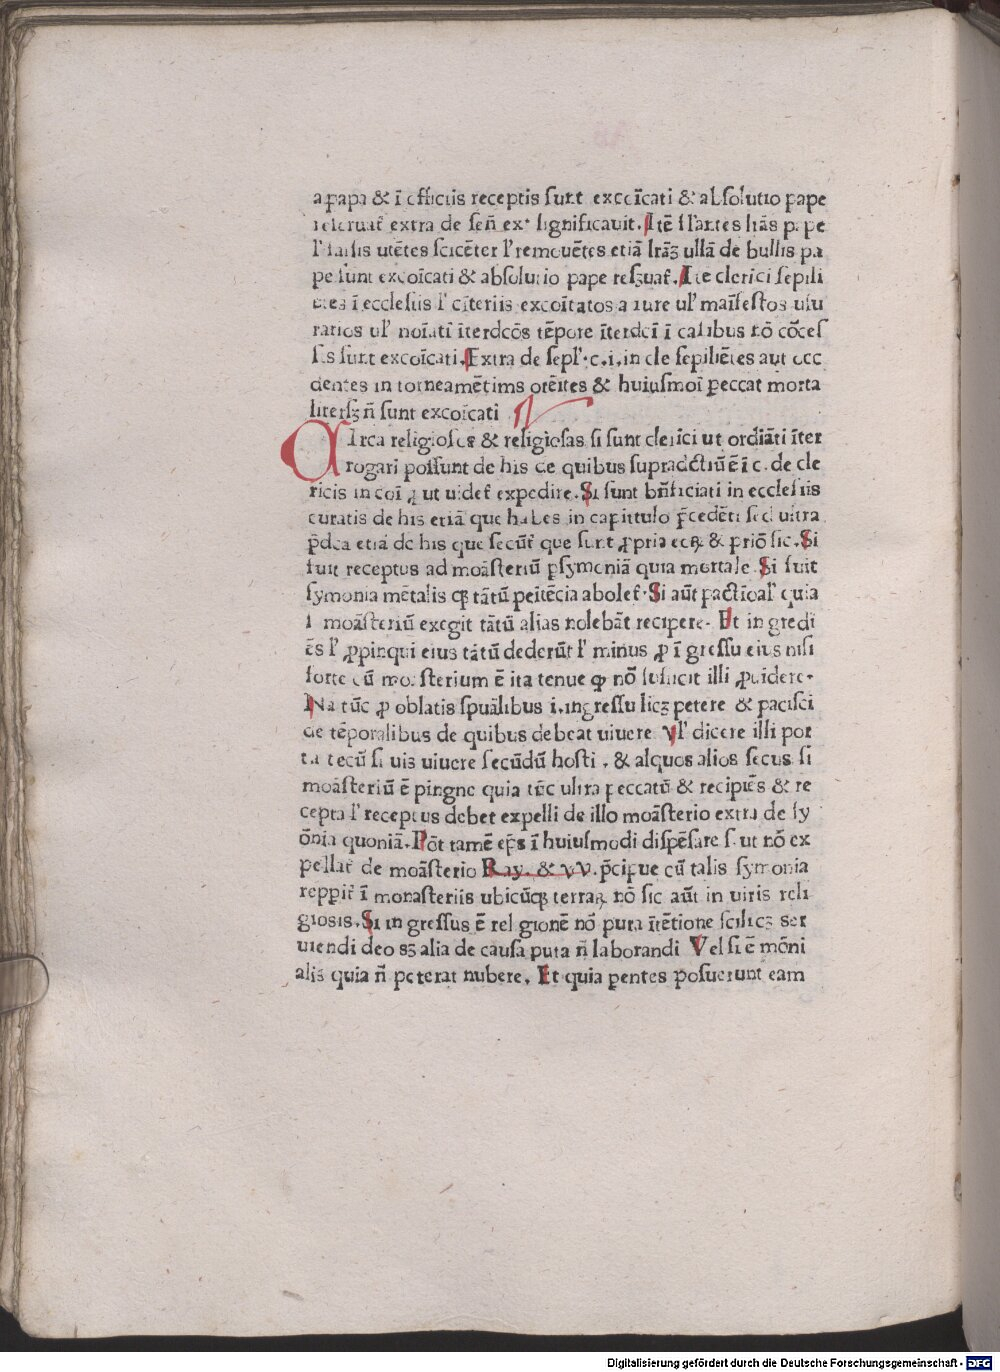 a papa & ī efficiis receptis sunt excoīcati & absolutio pape
reseruat᷑ extra de señ ex᷒ significauit. Itē fl'antes lrās pape
l' falsis utētes sciēter l' remouētes etiā lrāꝫ ullā de bullis pa
pe sunt excoīcati & absolutio pape resꝫuat᷑. Ite clerici sepili
ētes ī ecclesiis l' cīteriis excoīcatos a iure ul' maīfestos usu
rarios ul' noīati īterdcōs tēpore īterdcī ī casibus nō cōces
sis sunt excoīcati. Extra de sepl'. c. i. in cle sepiliētes aut occ
dentes in torneamētims
literꝫ ñ sunt excoīcati
Irca religioses & religiosas si sunt clerici ut ordiāti īter
rogari possunt de his de quibus supradctiū ē ī c. de cle
ricis in coī ꝗ ut uidet᷑ expedire. Si sunt bn̄ficiati in ecclesiis
curatis de his etiā que habes in capittulo p̄cedēti sed ultra
p̄dca etiā de his que secūt᷑ que sunt ꝓpria & priō sic. Si
fuit receptus ad moāsteriū ꝑsymoniā quia mortale. Si fuit
symonia mētalis qꝫ tātū peītēcia abolet᷑. Si aūt pactioal' quia
s moāsteriū exegit tātū alias nolebāt recipere. Et in gredi
ēs l' ꝓpinqui eius tātū dederūt l' minus ꝓ ī gressu eius nisi
forte cū monasterium ē ita tenue ꝙ nō sufficit illi ꝓuidere.
Na tūc ꝓ oblatis spuālibus i. ingressu licꝫ petere & pacisci
de tēporalibus de quibus debeat uiuere vl' dicere illi por
ta tecū si uis uiuere secūdū hosti. & alquos alios secus si
moāsteriū ē pingne quia tūc ultra peccatū & recipiēs & re
cepta l' receptus debet expelli de illo moāsterio extra de sy
ōnia quoniā. Pōt tamē ep̄s ī huiusmodi dispēsare s. ut nō ex
pellat᷑ de moāsterio Ray. & vv. p̄cipue cū talis symonia
reppit᷑ ī monasteriis ubicūqꝫ terraꝝ nō sic aūt in uiris reli
giosis. Si in gressus ē rel gionē nō pura ītētione scilicꝫ ser
uiendi deo sꝫ alia de causa puta ñ laborandi Vel si ē mōni
alis quia ñ poterat nubere. Et quia pentes posuerunt eam
Digitalisierung gefördert durch die Deutsche Forschungsgemeinschaft - DFG